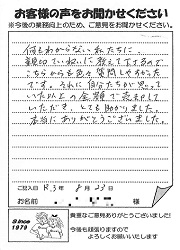 お客様の声をお聞かせください
※今後の業務向上のため、ご意見をお聞かせください。
何もわからない私たちに、
親切ていねいに教えて下さるので
こちらからも色々質問しやすかった
です。それに自分たちが思って
いた以上の金額で売却して
いただき、とても助かりました。
本当にありがとうございました。
ご記入日 R.3年 8月23日
お名前 様
Since
1979
貴重なご意見ありがとうございました!
今後も頑張りますので
よろしくお願いいたします